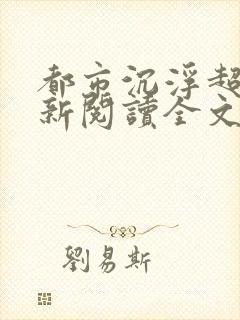 都市沉浮超
新閱讀全文
劉易斯